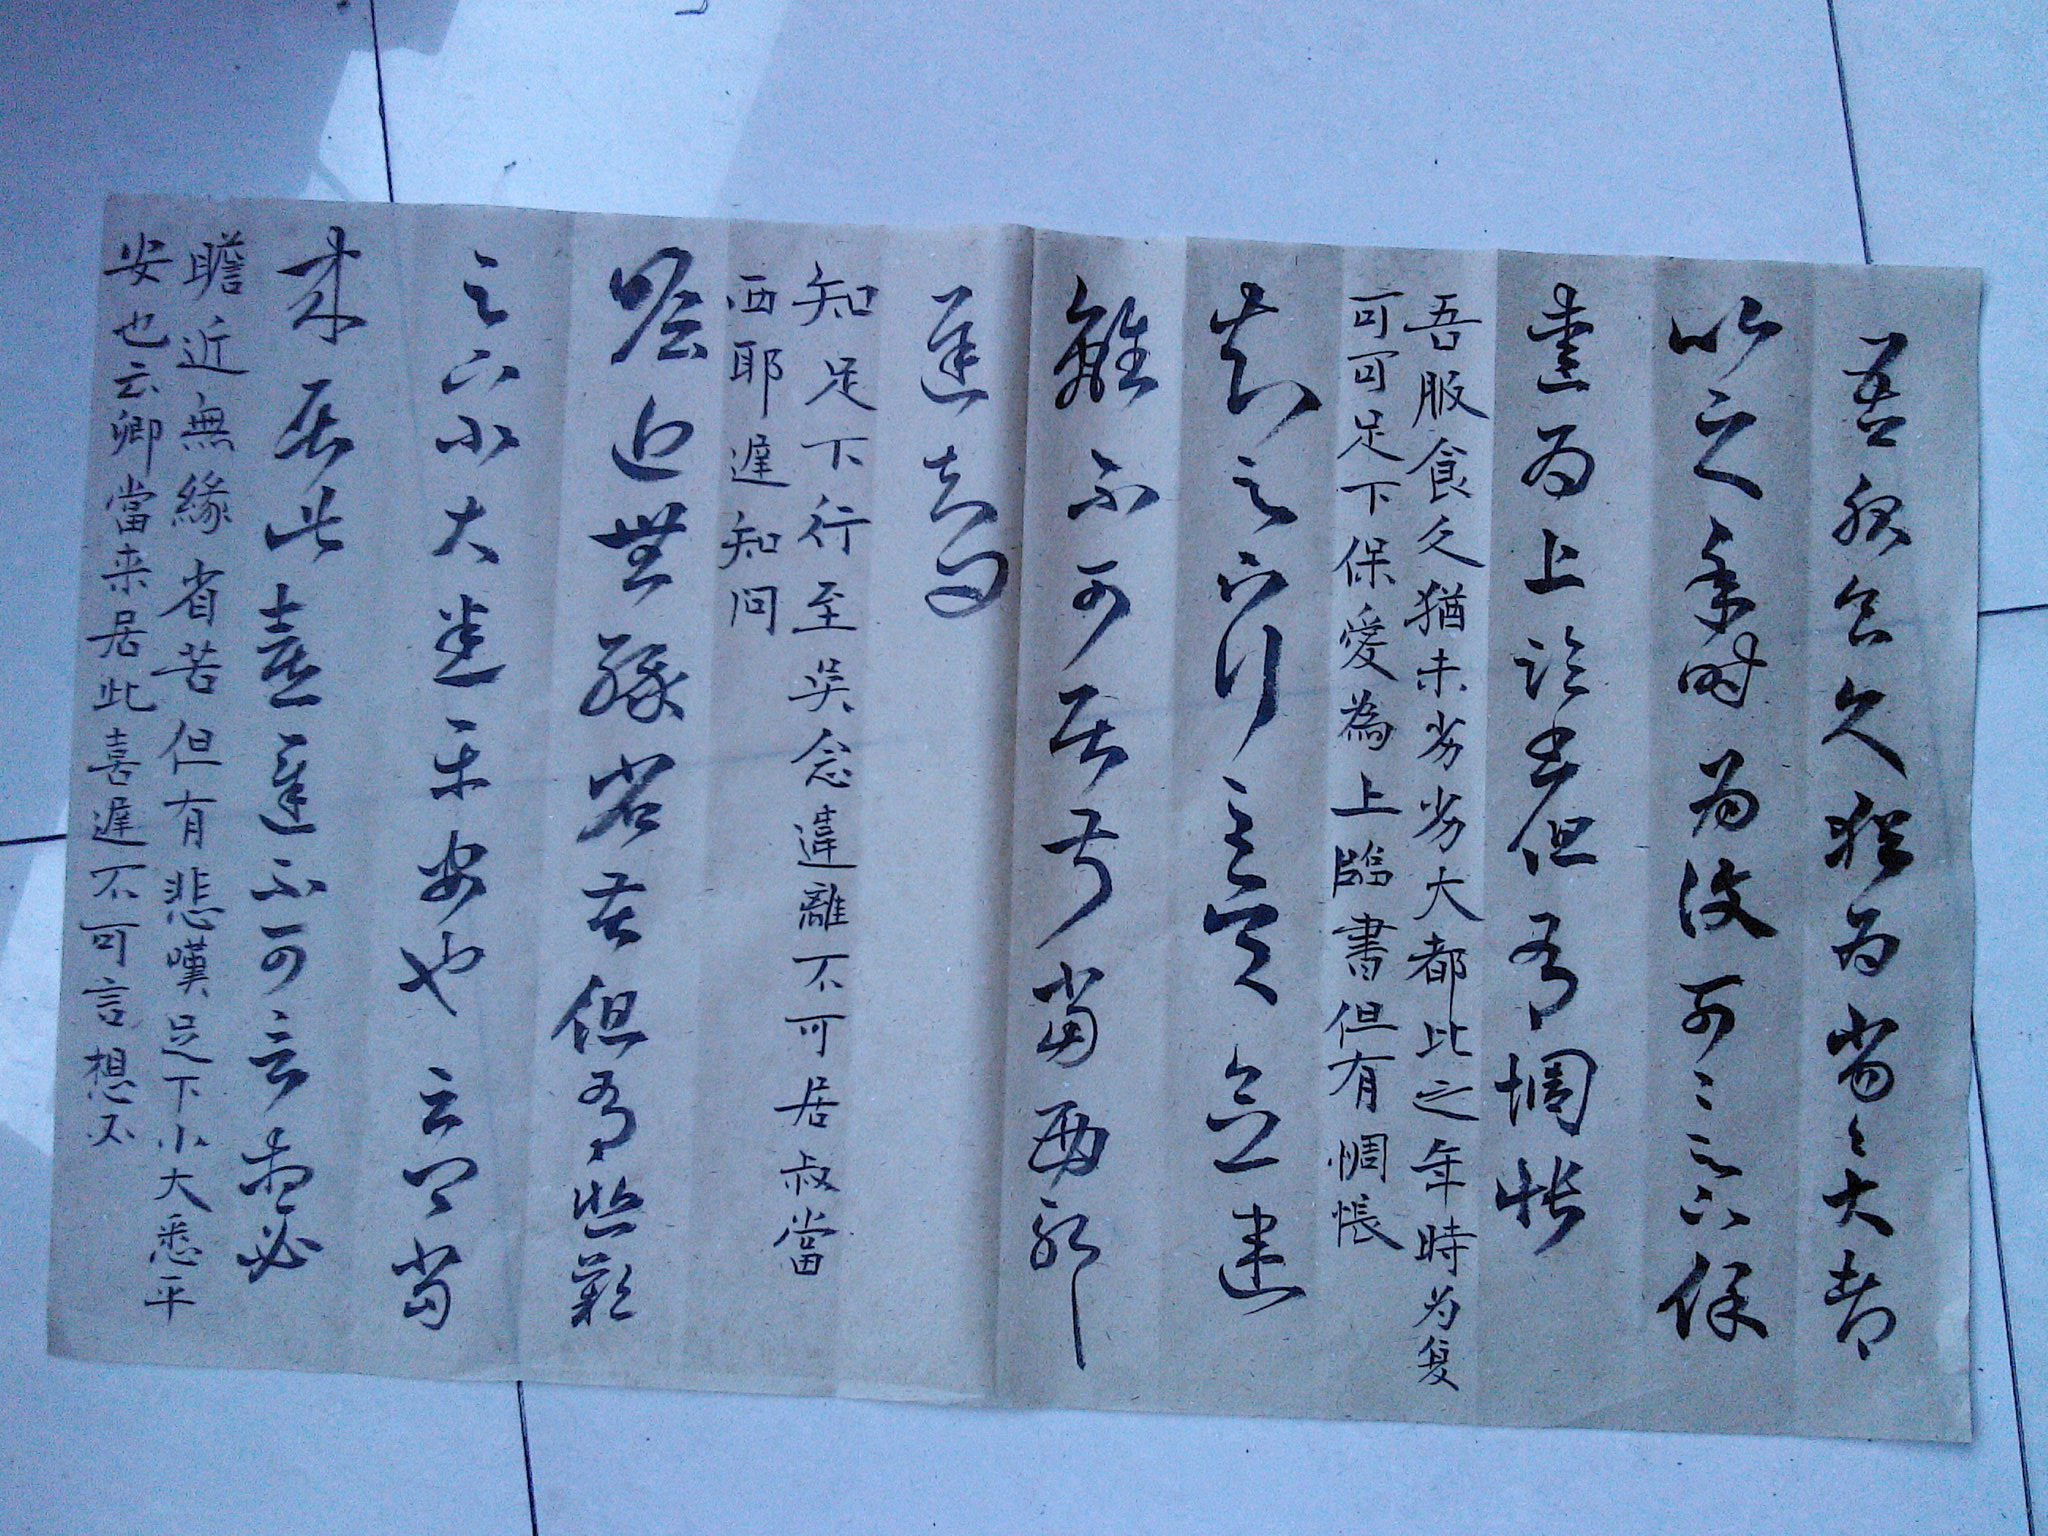 吾服食久猶為劣々大都
比之年時為復可々足下保
愛為上臨書但有惆悵
吾服食久猶未劣劣大都比之年時为复
可可足下保愛為上臨書但有惆悵
知足下行至吳念違
離不可居叔當西耶
遲知問
知足下行至吳念違離不可居叔當
西耶遲知問
瞻近無緣省苦但有悲歎
足下小大悉平安也云卿當
來居此喜遲不可言想必
瞻近無緣省苦但有悲嘆足下小大悉平
安也云卿當来居此喜遲不可言想不